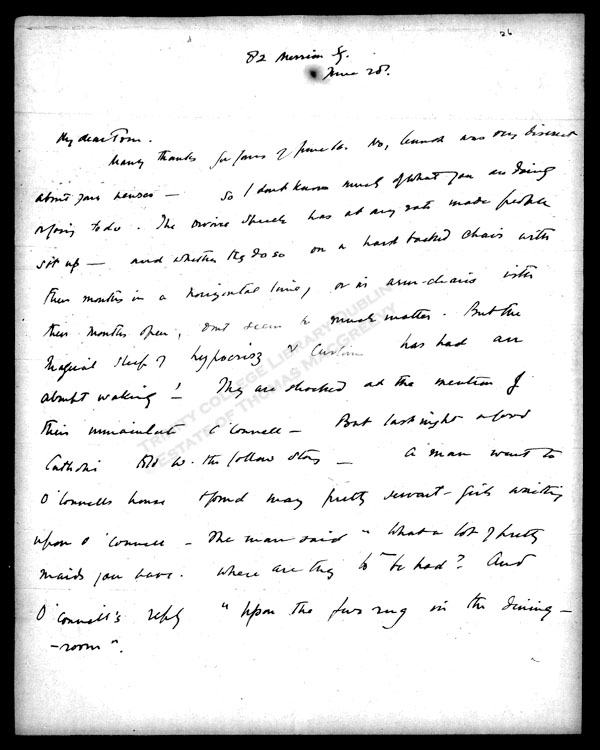 26
82 Merrion Sq.
June 28.
My dear Tom.
Many thanks for yours of June 12. No, Lennox was very discreet
about your news — So I don't know much of what you are doing
or going to do. The divorce speech has at any rate made people
sit up — and whether they do so on a hard backed chair with
their mouths in a horizontal line, or in arm-chairs with
their mouths open, don't seem to much matter. But the
magical sleep of hypocrisy & has had an
abrupt waking! They are shocked at the mention of
their immaculate O'Connell — But last night a good
Catholic told W. the follow story — A man went to
O'Connell's house & found many pretty servant-girls waiting
upon O'Connell — The man said "What a lot of pretty
maids you have. Where are they to be had? And
O'Connell's reply "upon the fur rug in the dining-
-room".
TRINITY COLLEGE LIBRARY DUBLIN
ESTATE OF THOMAS MACGREEVY